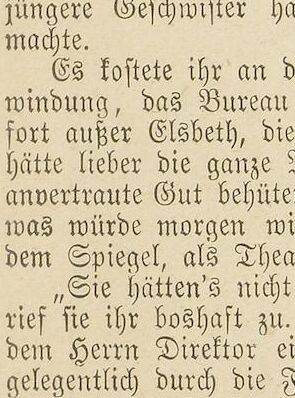 jüngere Geschwister ha
machte.
Es kostete ihr an d
windung, das Bureau
fort außer Elsbeth, die
hätte lieber die ganze
anvertraute Gut behüte
was würde morgen wi
dem Spiegel, als Thea
„Sie hätten's nicht
rief sie ihr boshaft zu.
dem Herrn Direktor ei
gelegentlich durch die